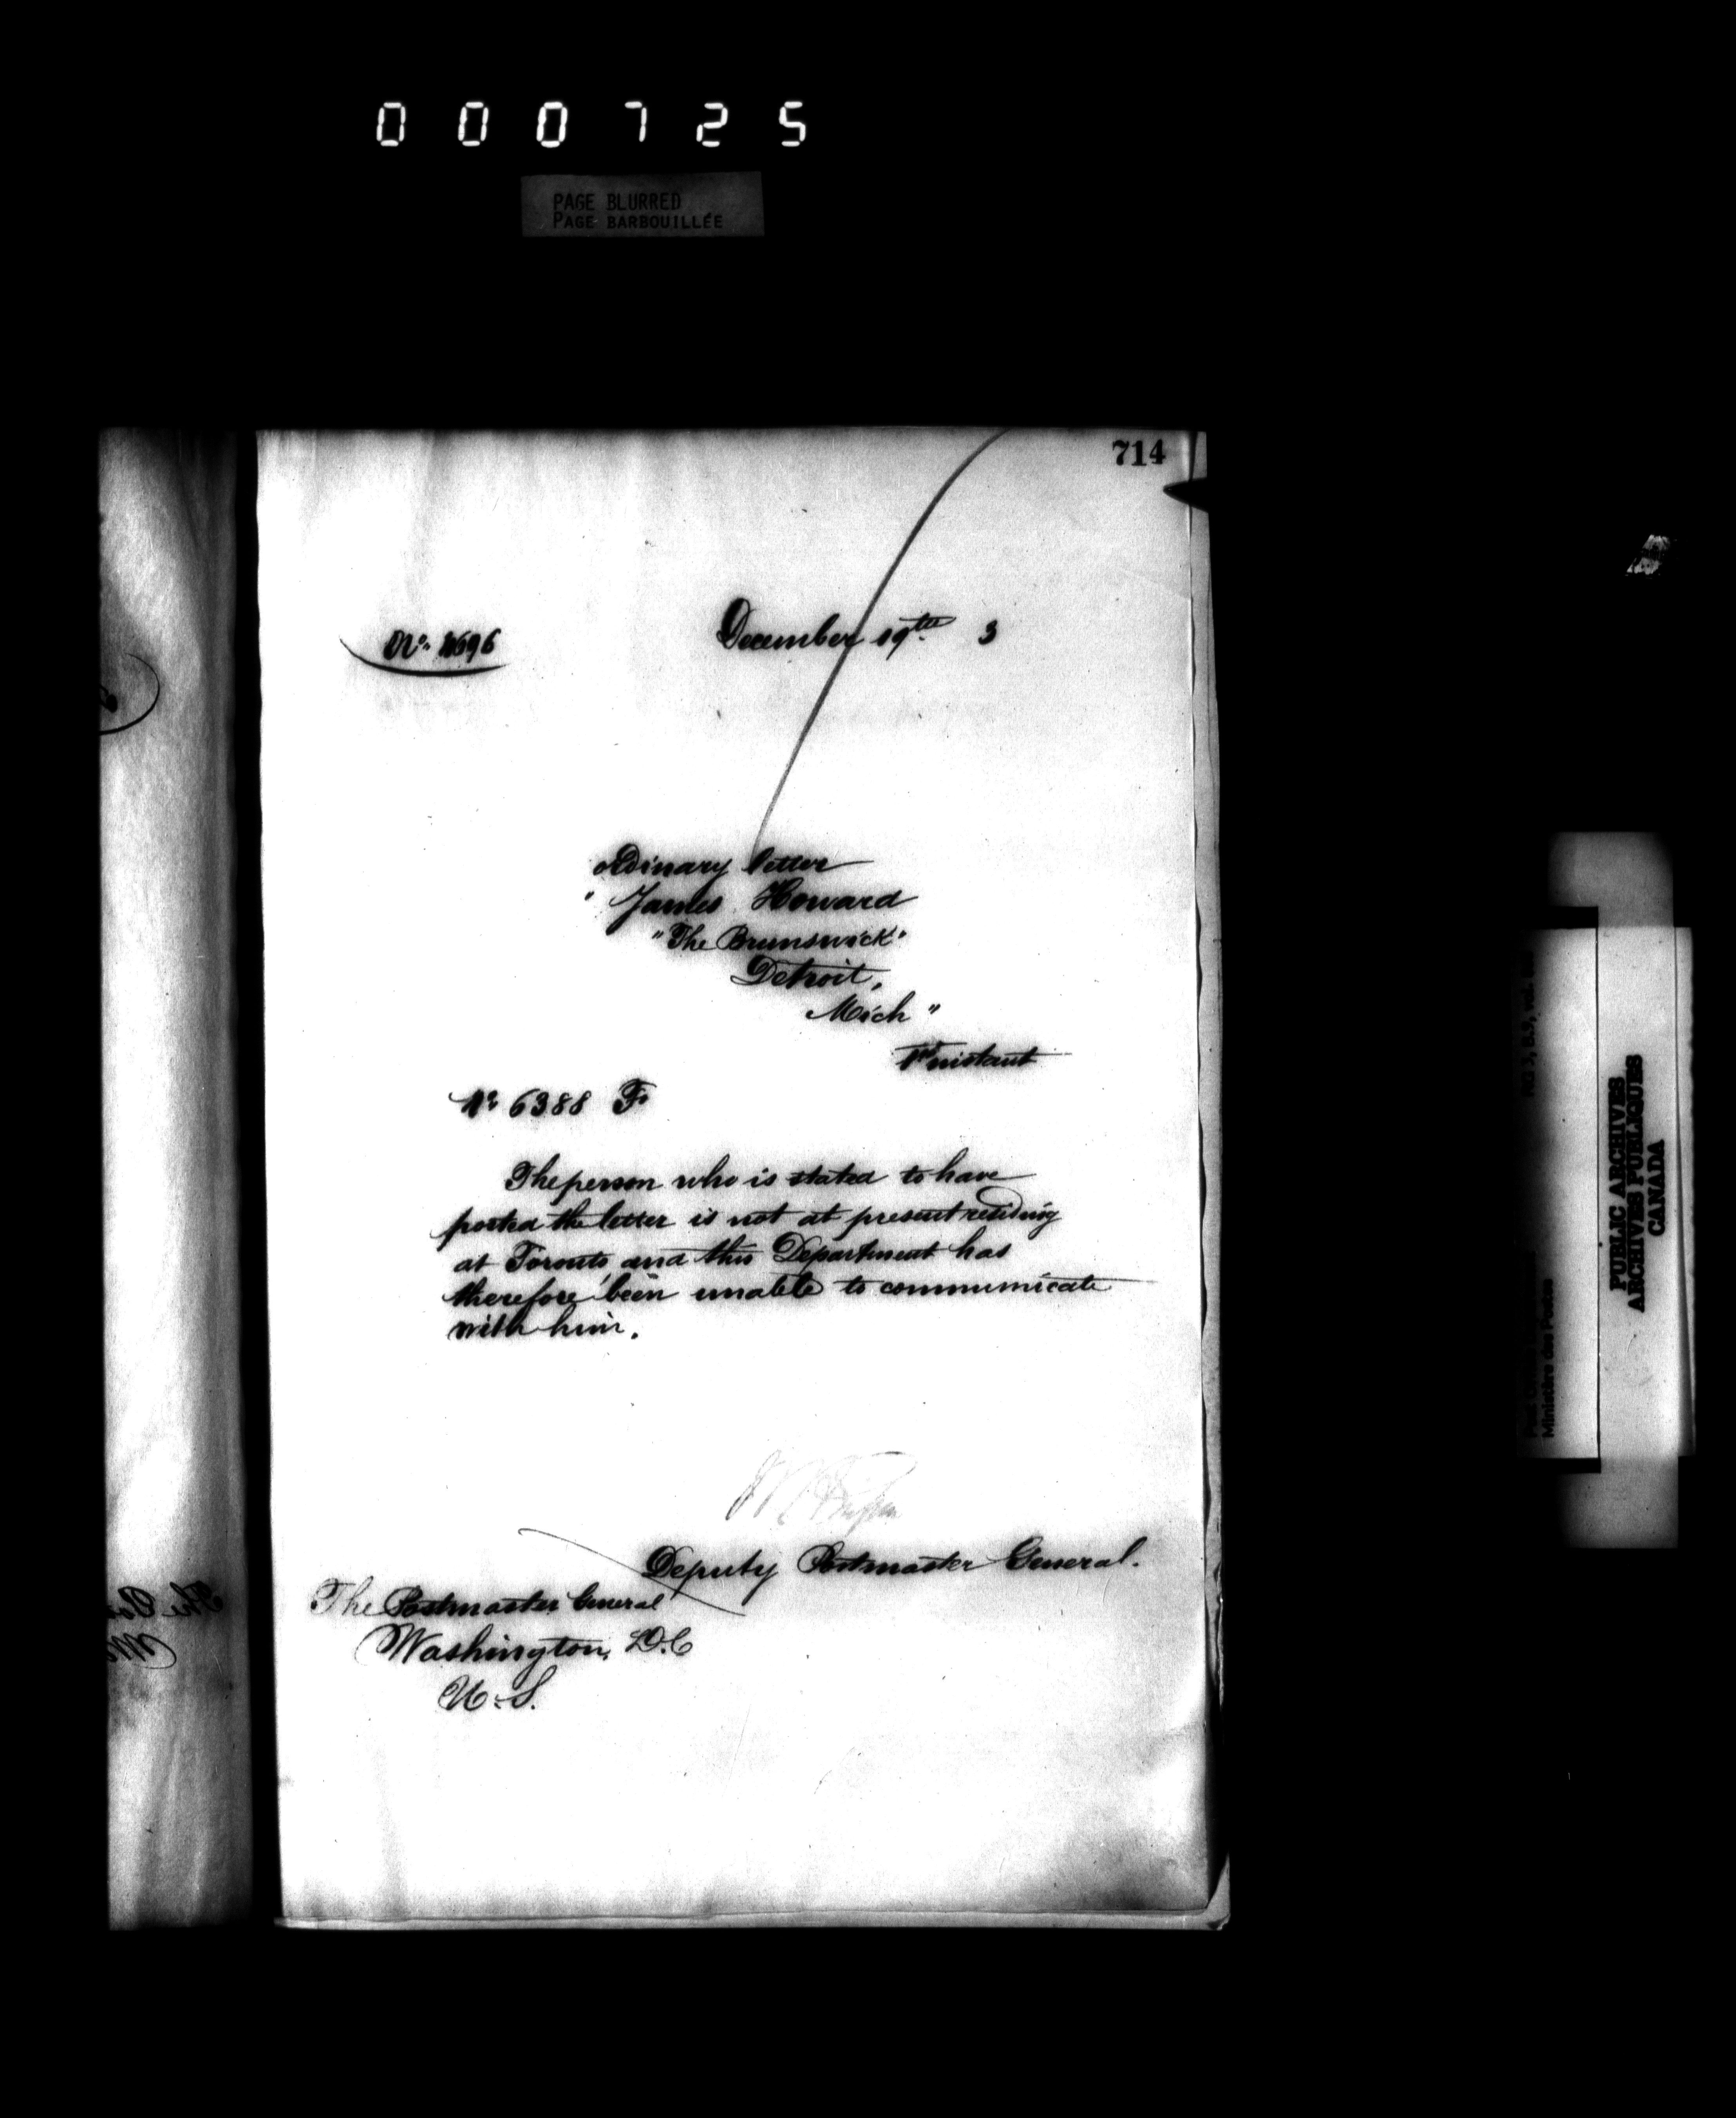 000725
PAGE BLURRED
PAGE BARBOUILLÉE
714
No. 1696
December 19th 3
ordinary letter
" James Howard
"The Brunswick"
Detroit,
Mich "
1st instant
No 6388 F
The person who is stated to have
posted the letter is not at present residing
at Toronto, and this Department has
therefore been unable to communicate
with him.
Deputy Postmaster General.
The Postmaster General
Washington, D.C
U.S.
PUBLIC ARCHIVES
ARCHIVES PUBLIQUES
CANADA
Ministère des Postes